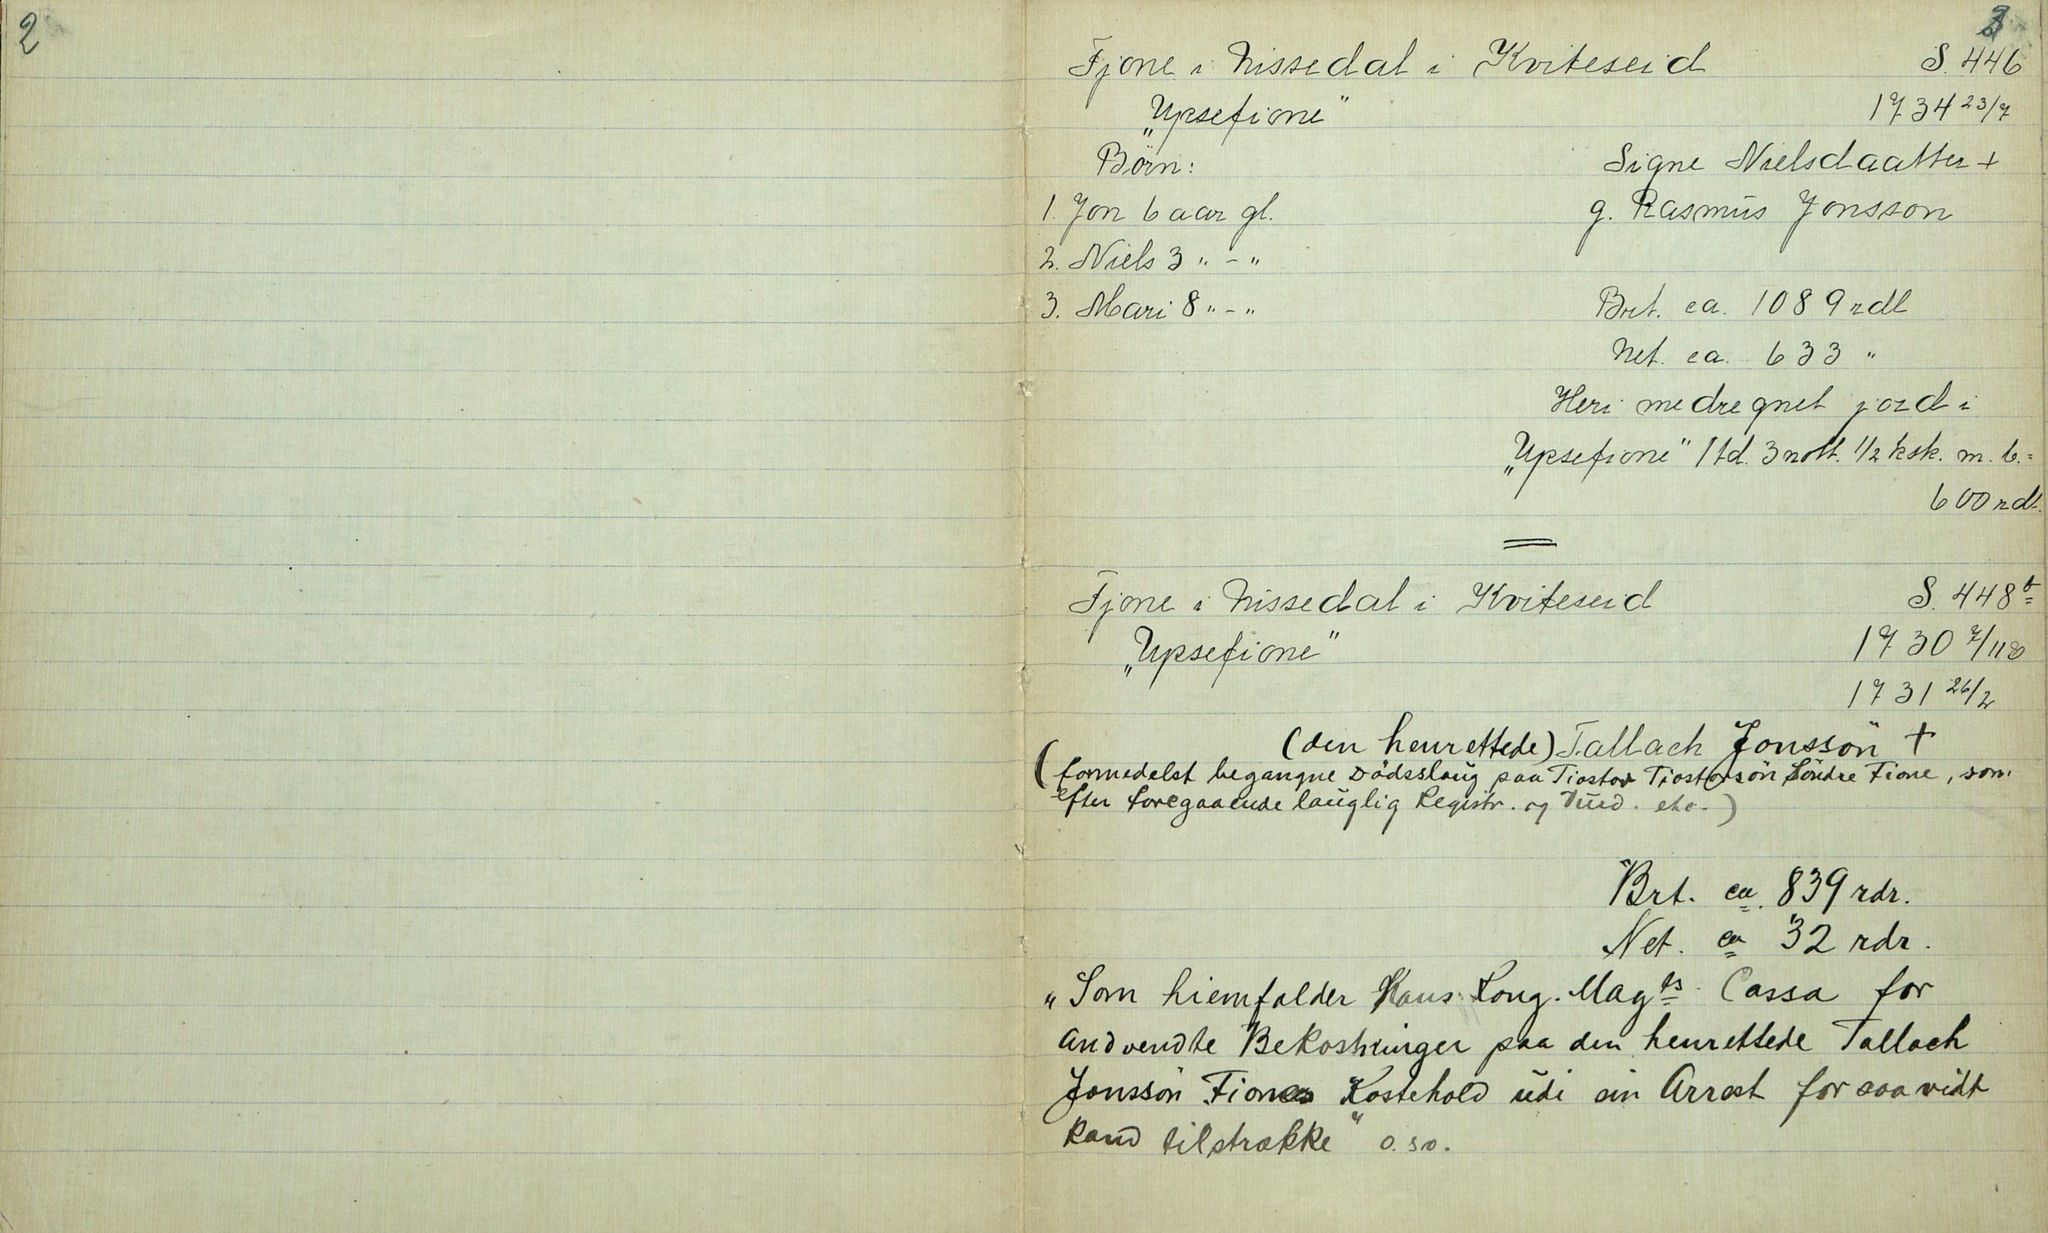 2
3
Fjone i Nissedal i Kviteseid S. 446
„Upsefione" 1734 23/7
Börn: Signe Nielsdaatter +
1. Jon 6 aar gl. g. Rasmus Jonsson
2. Niels 3 " - "
3. Mari 8 " - " Brt. ca. 1089 rdl
Net. ca. 633 "
Heri medregnet jord i
„Upsefione" 1 td. 3 nott. 1/2 ksk. m. b. =
600 rdl.
Fjone i Nissedal i Kviteseid S. 448 b
„Upsefione" 1730 7/11 &
1731 26/2
(den henrettede) Tallach Jonssön +
(formedelst begangne Dödsslaug paa Tiostor Tiostorsön Söndre Fione, som
efter foregaaende lauglig Registr. og Vurd. etc.)
Brt. ca. 839 rdr.
Net. ca 32 rdr.
„Som hiemfalder Hans Kong. Mag ts Cassa for
andvendte Bekostninger paa den henrettede Tallach
Jonssön Fiones Kostehold udi sin Arrest for saa vidt
kand tilstrække" o.s.v.